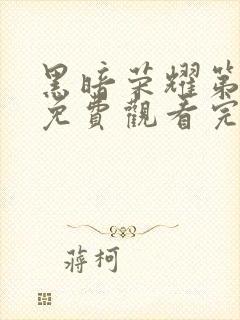 黑暗荣耀第
免費觀看完
蔣柯